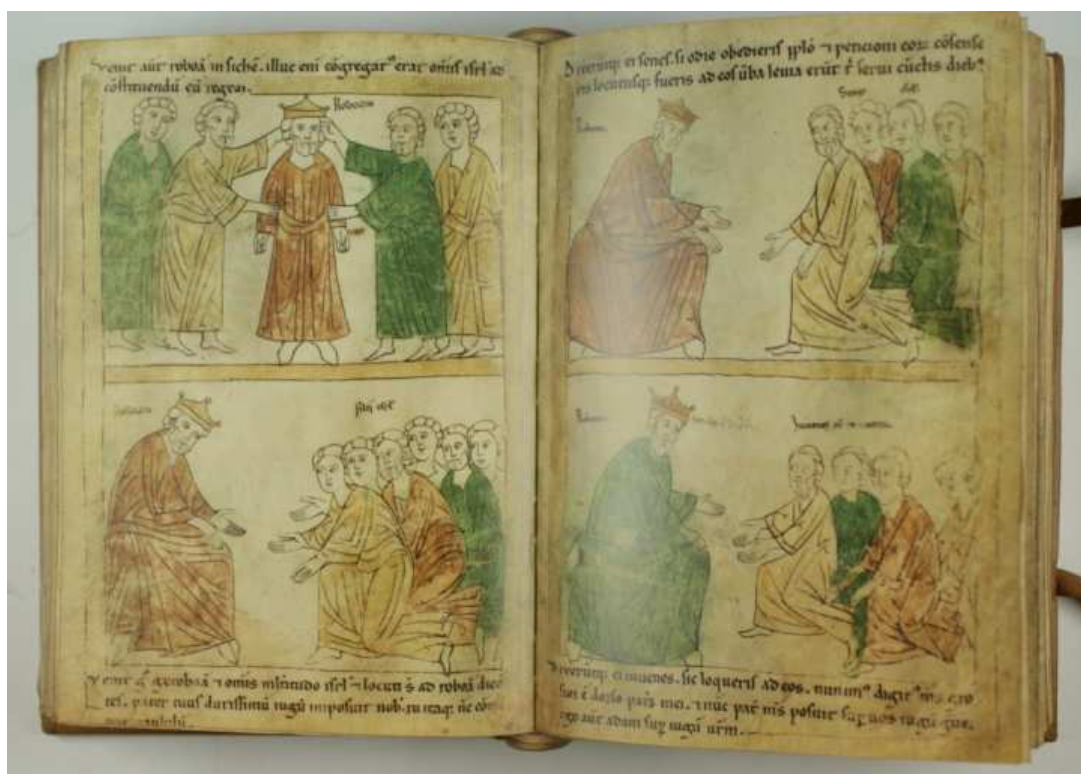 Venit aut̄ roboā in sichē. illuc eni cōgregatꝰ erat omīs isrł ad
cōstituendū eū regem.
Roboam
filij isrł
Venit g̊ roboā ⁊ omīs ml̄titudo isrł ⁊ locuti s̄ ad roboā dicē
tes. pater tuus durissimū iugū imposuit nob̄. tu itaq̧
Dixerūnt̄ ei senes. si odie obedieris pp̄lo ⁊ peticioni eoꝝ cōsense
ris locutusq̧ fueris ad eos ūba lenia erūt t̄ serui cūctis diebꝫ
Roboam
Roboam
Iuuenes
Dixerūnt̄ ei iuuenes. sic loqueris ad eos. minimꝰ digitꝰ m̄s gro
sior ē dorso patris mei. ⁊ nūc pat̄ m̄s posuit suꝑ uos iugū g̊ue.
ego aut̄ adam suꝑ iugū ur̄m.